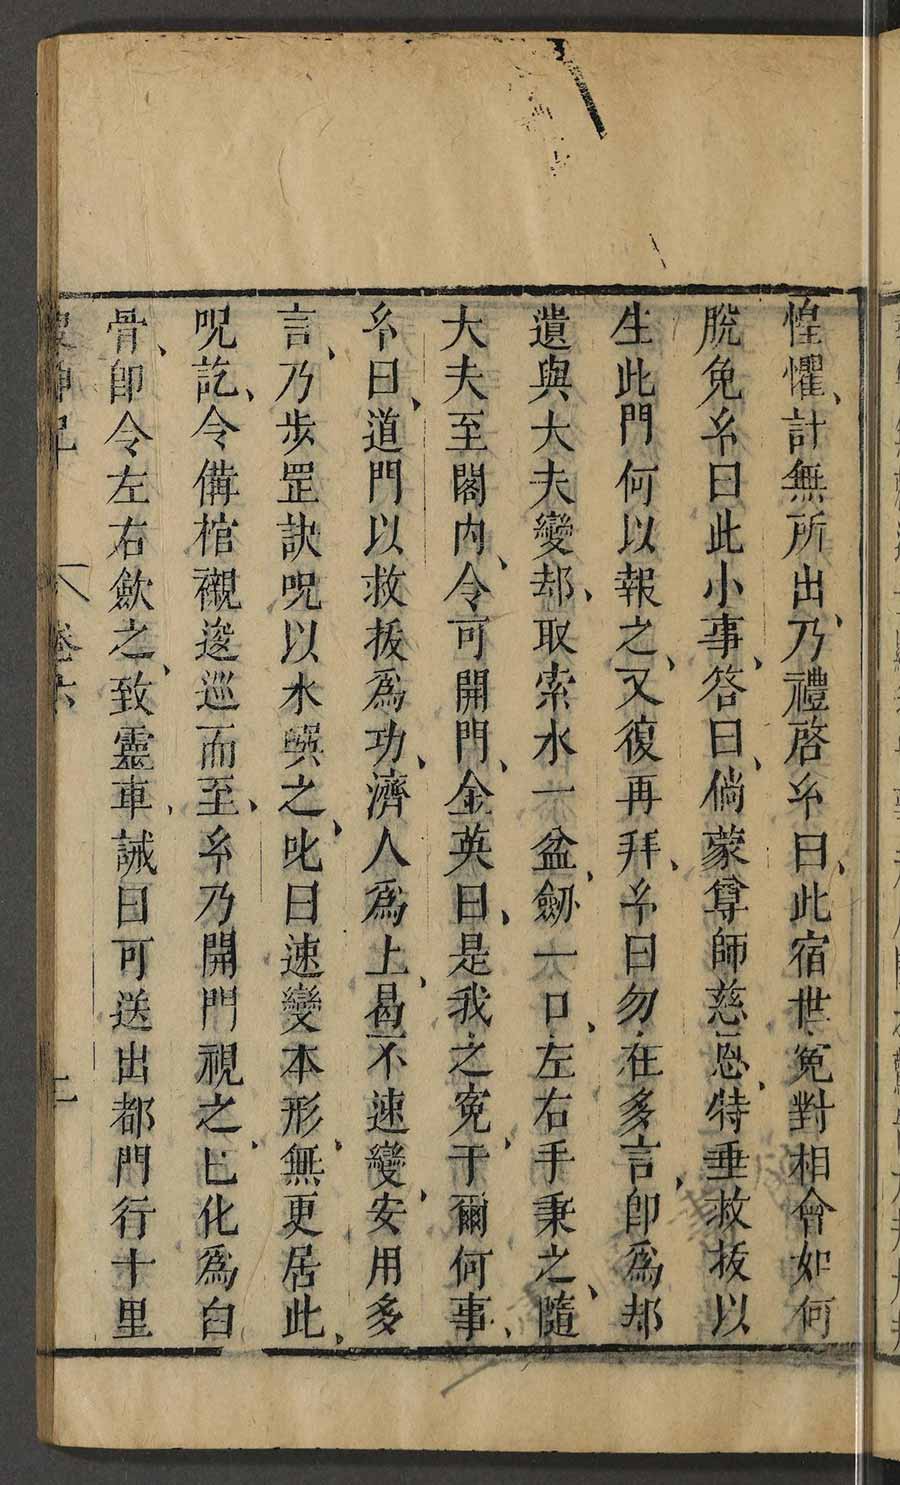 惶懼、計無所出、乃禮啓糸曰、此宿世寃對相會如何
脫免糸曰此小事、答曰、倘蒙尊師慈恩、特垂救拔以
生此門何以報之、又復再拜、糸曰勿在多言、卽爲却
遺與大夫變却、取索水一盆、劒一口、左右手秉之、隨
大夫至閣内、令可開門、金英曰、是我之寃、于爾何事、
糸曰、道門以救拔爲功、濟人爲上、曷不速變、安用多
言、乃步罡訣呪以水噀之、叱曰速變本形、無更居此、
呪訖、令備棺襯逡巡而至、糸乃開門視之、已化爲白
骨、卽令左右斂之、致靈車、誡曰可送出都門行十里
搜神記 卷六